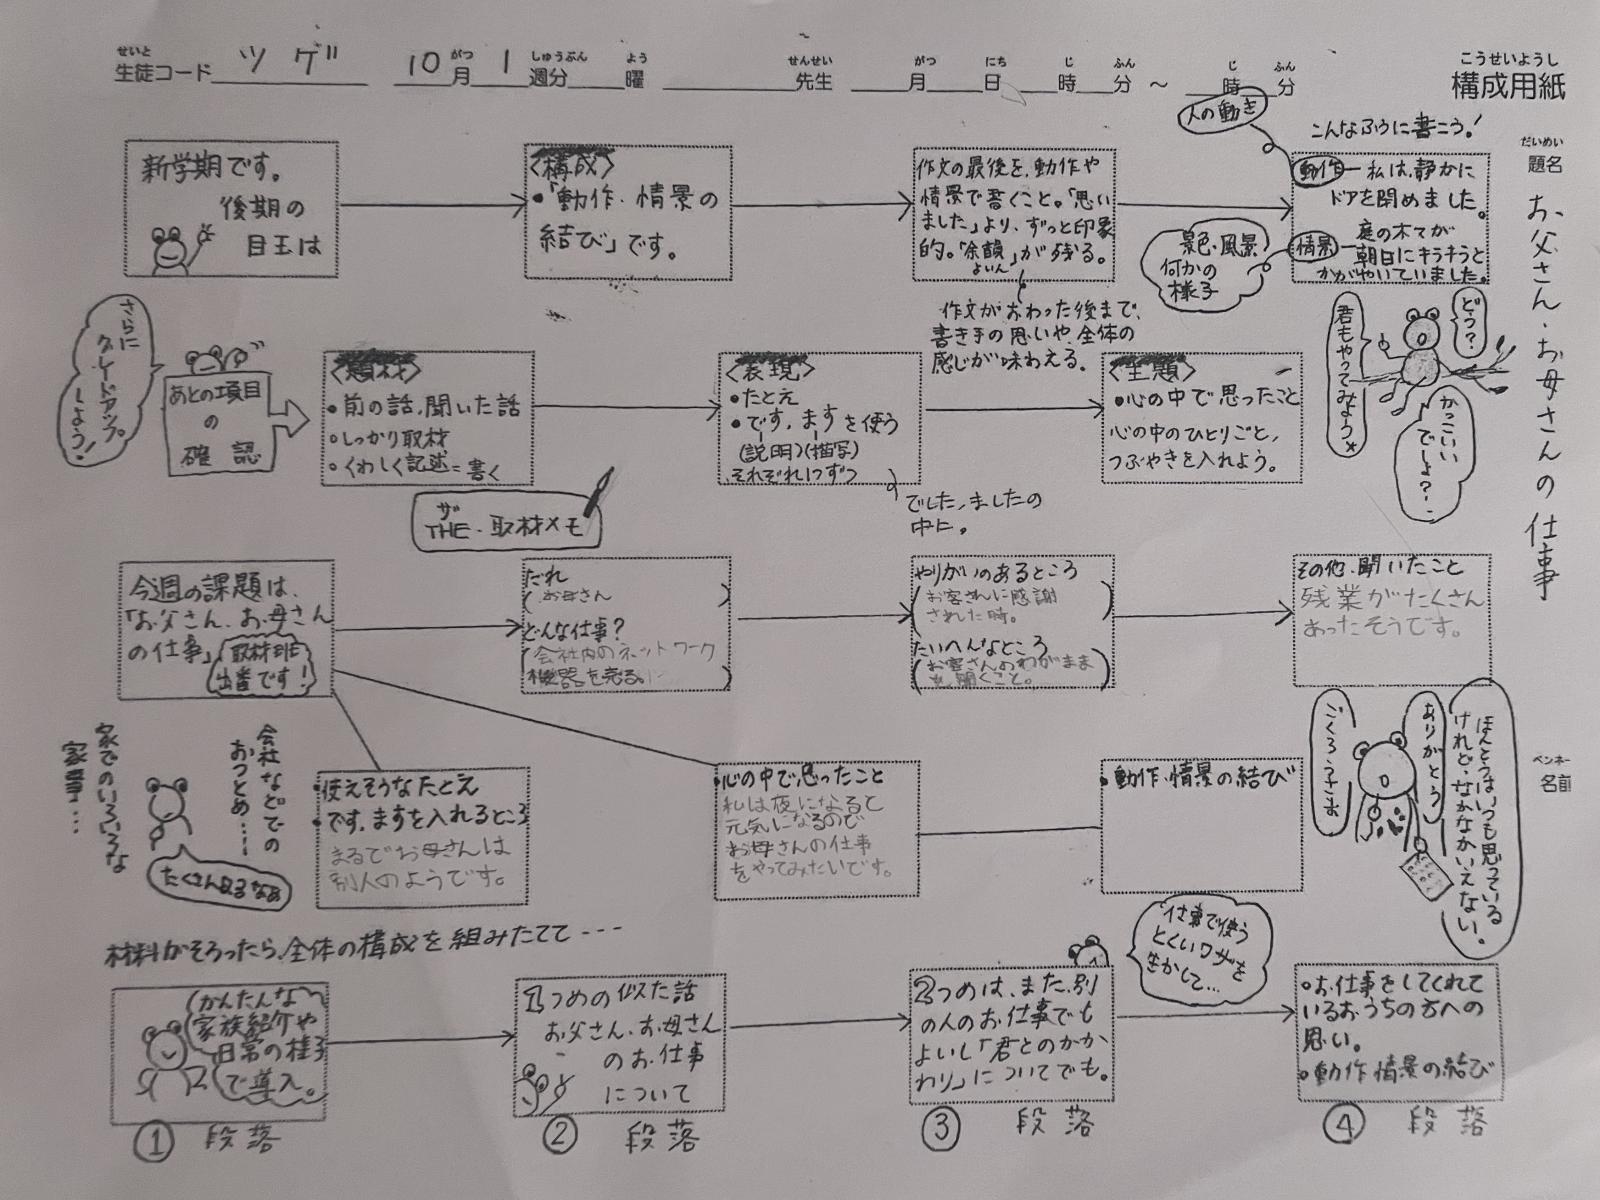 せいと
生徒コード ツゲ 10 がつ 月 1 しゅうぶん 週分 よう 曜 せんせい 先生 がつ 月 にち 日 じ 時 ふん 分 ～ じ 時 ふん 分
こうせいようし
構成用紙
だいめい
題名
お父さん・お母さんの仕事
ペンネー
名前
新学期です。
後期の
目玉は
〈構成〉
・「動作・情景の
結び」です。
作文の最後を、動作や
情景で書くこと。「思い
ました」より、ずっと印象
的。「余韻」が残る。
よいん
作文がおわった後まで、
書き手の思いや、全体の
感じが味わえる。
人の動き
こんなふうに書こう!
動作 ― 私は、静かに
ドアを閉めました。
情景 ― 庭の木々が
朝日にキラキラと
かがやいていました。
景色・風景
何かの
様子
さらに
グレードアップ
しよう!
あとの項目
の
確認
〈題材〉
・前の話、聞いた話
・しっかり取材
・くわしく記述=書く
ザ
THE・取材メモ
〈表現〉
・たとえ
・です、ますを使う
(説明)(描写)
それぞれ1つずつ
でした、ましたの
中に。
〈主題〉
・心の中で思ったこと
心の中のひとりごと、
つぶやきを入れよう。
どう?
君もやってみよう
かっこいい
でしょ?
今週の課題は、
「お父さん、お母さん
の仕事」
取材班
出番です!
だれ
(お母さん)
どんな仕事?
(会社内のネットワーク
機器を売る。)
やりがいのあるところ
(お客さんに感謝
された時。)
たいへんなところ
(お客さんのわがまま
を聞くこと。)
その他、聞いたこと
残業がたくさん
あったそうです。
会社などでの
おつとめ・・・
家でのいろいろな
家事・・・
たくさんあるなぁ
・使えそうなたとえ
・です、ますを入れるところ
まるでお母さんは
別人のようです。
・心の中で思ったこと
私は夜になると
元気になるので
お母さんの仕事
をやってみたいです。
・動作・情景の結び
ほんとうはいつも思っている
けれど、なかなかいえない。
ありがとう
ごくろうさま
材料がそろったら、全体の構成を組みたてて---
かんたんな
家族紹介や
日常の様子
で導入。
① 段落
1つめの似た話
お父さん、お母さん
のお仕事
について
② 段落
2つめは、また、別
の人のお仕事でも
よいし「君とのかか
わり」についてでも。
③ 段落
仕事で使う
とくいワザを
生かして…
・お仕事をしてくれて
いるおうちの方への
思い。
・動作情景の結び
④ 段落